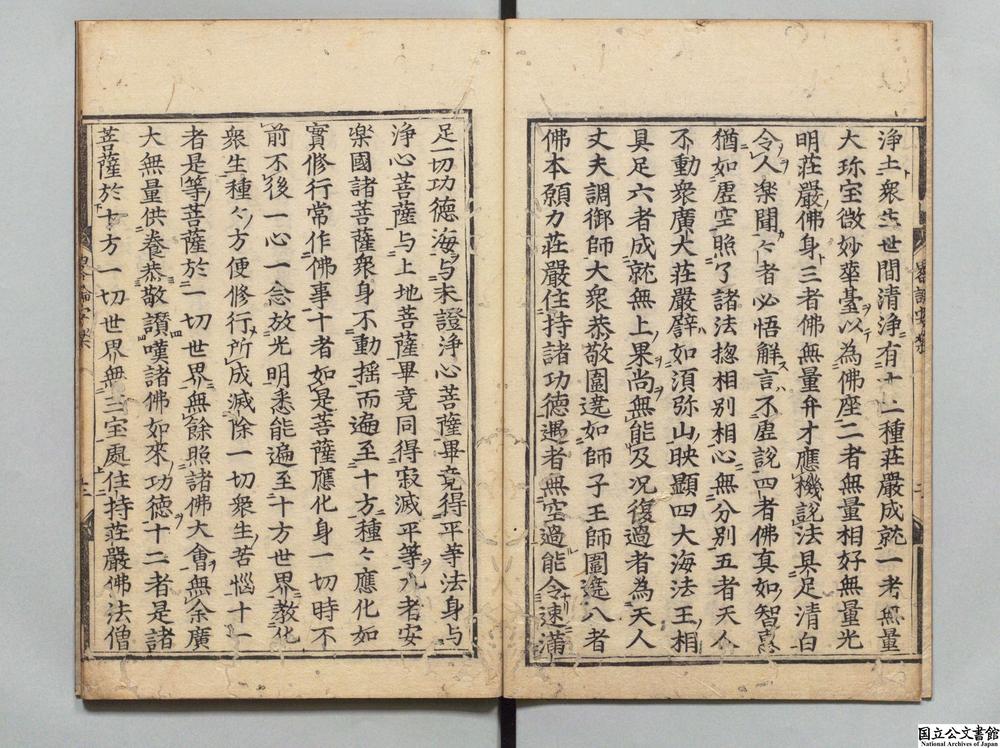 浄土衆生世間清浄有十二種莊嚴成就一者無量
大珎宝微妙華臺以為佛座二者無量相好無量光
明莊嚴佛身三者佛無量弁才應機說法具足清白
令人楽聞々者必悟解言不虚說四者佛真如智惠
猶如虚空照了諸法揔相別相心無分別五者天人
不動衆廣大莊嚴譬如湏弥山映顯四大海法王相
具足六者成就無上果尚無能及况復過者為天人
丈夫調御師大衆恭敬圍遶如師子王師圍遶八者
佛本願力莊嚴住持諸功德遇者無空過能令速滿
足一切功德海与未證淨心菩薩畢竟得平等法身与
淨心菩薩与上地菩薩畢竟同得寂滅平等九者安
楽國諸菩薩衆身不動揺而遍至十方種々應化如
實修行常作佛事十者如是菩薩應化身一切時不
前不後一心一念放光明悉能遍至十方世界教化
衆生種々方便修行所成滅除一切衆生苦惱十一
者是等菩薩於一切世界無餘照諸佛大會無余廣
大無量供養恭敬讃嘆諸佛如來功德十二者是諸
菩薩於十方一切世界無三宝處住持莊嚴佛法僧
国立公文書館
National Archives of Japan